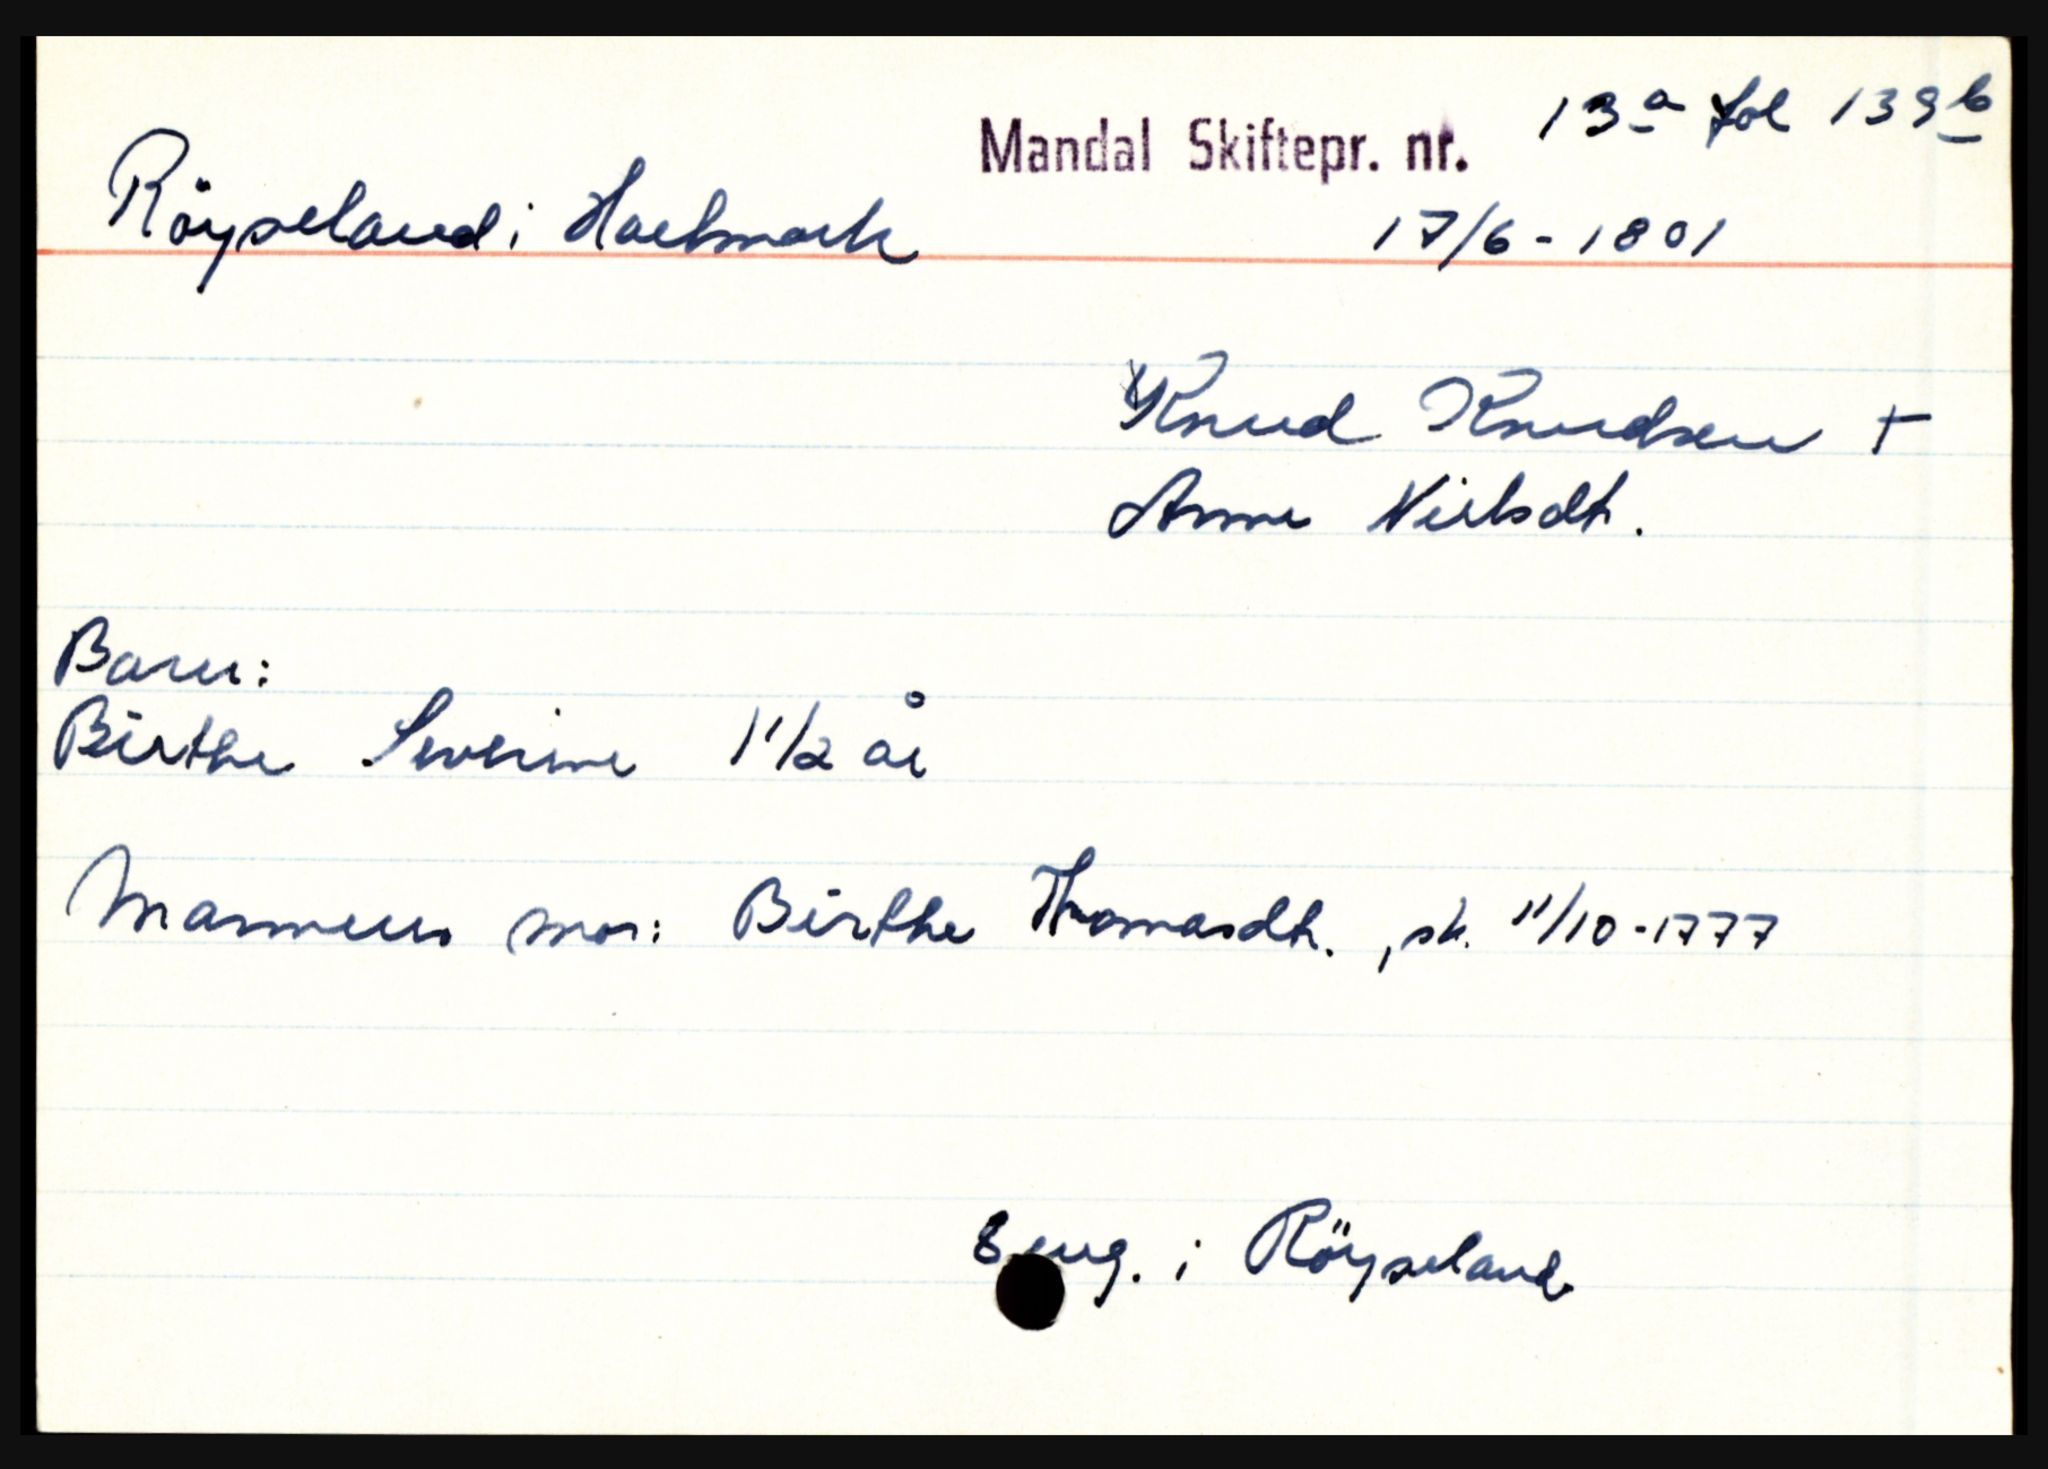 Mandal Skiftepr. nr. 13a fol 139b
Röyseland i Halsmark 17/6 - 1801
Knud Knudsen +
Anne Nielsdt.
Barn:
Birthe Severine 1 1/2 år
Mannens mor: Birthe Thomasdt., sk. 11/10 - 1777
8 eng. i Röyseland